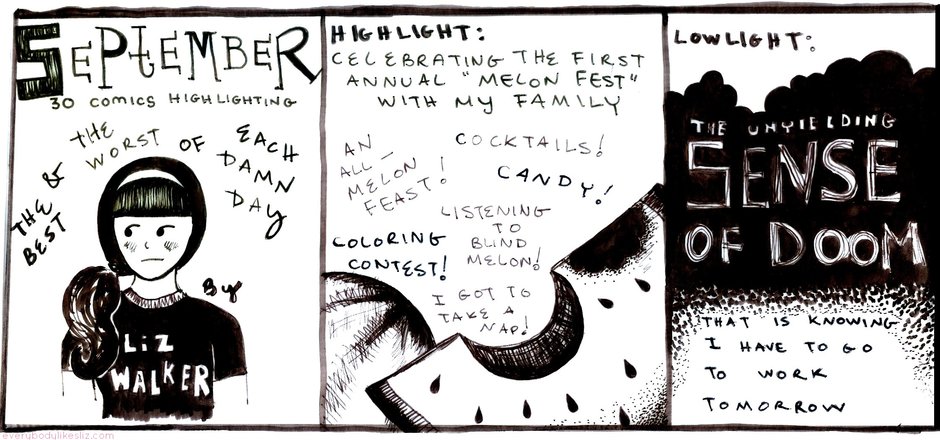 SEPTEMBER
30 COMICS HIGHLIGHTING
THE BEST
& THE WORST OF
EACH DAMN DAY
By
LiZ
WALKER
HIGHLIGHT:
CELEBRATING THE FIRST
ANNUAL "MELON FEST"
WITH MY FAMILY
AN
ALL-
MELON
FEAST!
COCKTAILS!
CANDY!
COLORING
CONTEST!
LISTENING
TO
BLIND
MELON!
I GOT TO
TAKE A
NAP!
LOWLIGHT:
THE UNYIELDING
SENSE
OF DOOM
THAT IS KNOWING
I HAVE TO GO
TO WORK
TOMORROW
everybodylikesliz.com